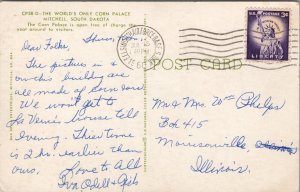 CPSB O - THE WORLD'S ONLY CORN PALACE
MITCHELL, SOUTH DAKOTA
The Corn Palace is open free of charge the
year around to visitors.
POST CARD
U.S. POSTAGE 3¢
LIBERTY
Dear Folks,
The picture in &
on this building are
all made of corn and
We won't get to
La Vern's house till
Evening. This time
is 2 hrs. earlier than
ours. Love to All
Iva Odell &
Mr & Mrs. Wm Phelps
Box 415
Morrisonville,
Illinois.